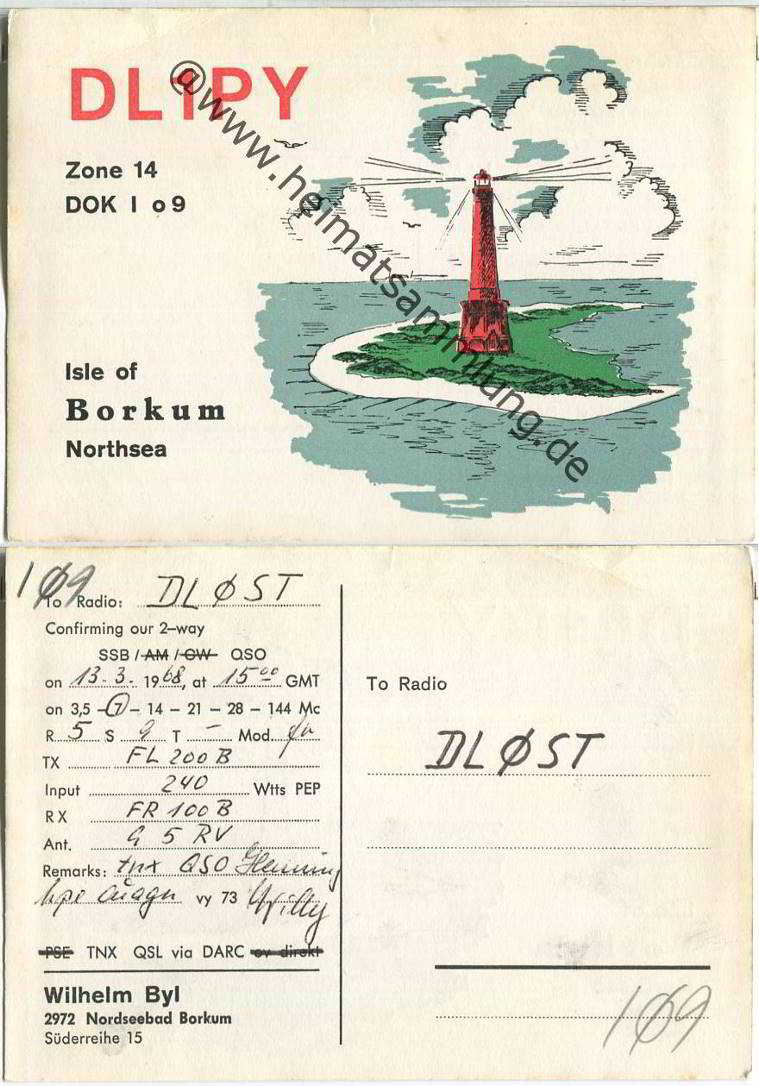 DL1PY
Zone 14
DOK I o9
Isle of
Borkum
Northsea
@www.heimatsammlung.de
1Ø9
To Radio: DLØST
Confirming our 2-way
SSB / AM / CW QSO
on 13.3. 1968, at 15 00 GMT
on 3,5 - 7 - 14 - 21 - 28 - 144 Mc
R 5 S 9 T - Mod.
TX FL 200 B
Input 240 Wtts PEP
RX FR 100 B
Ant. G 5 RV
Remarks: tnx QSO Henning
hpe cuagn vy 73 Willy
PSE TNX QSL via DARC ov direkt
Wilhelm Byl
2972 Nordseebad Borkum
Süderreihe 15
To Radio
DLØST
1Ø9